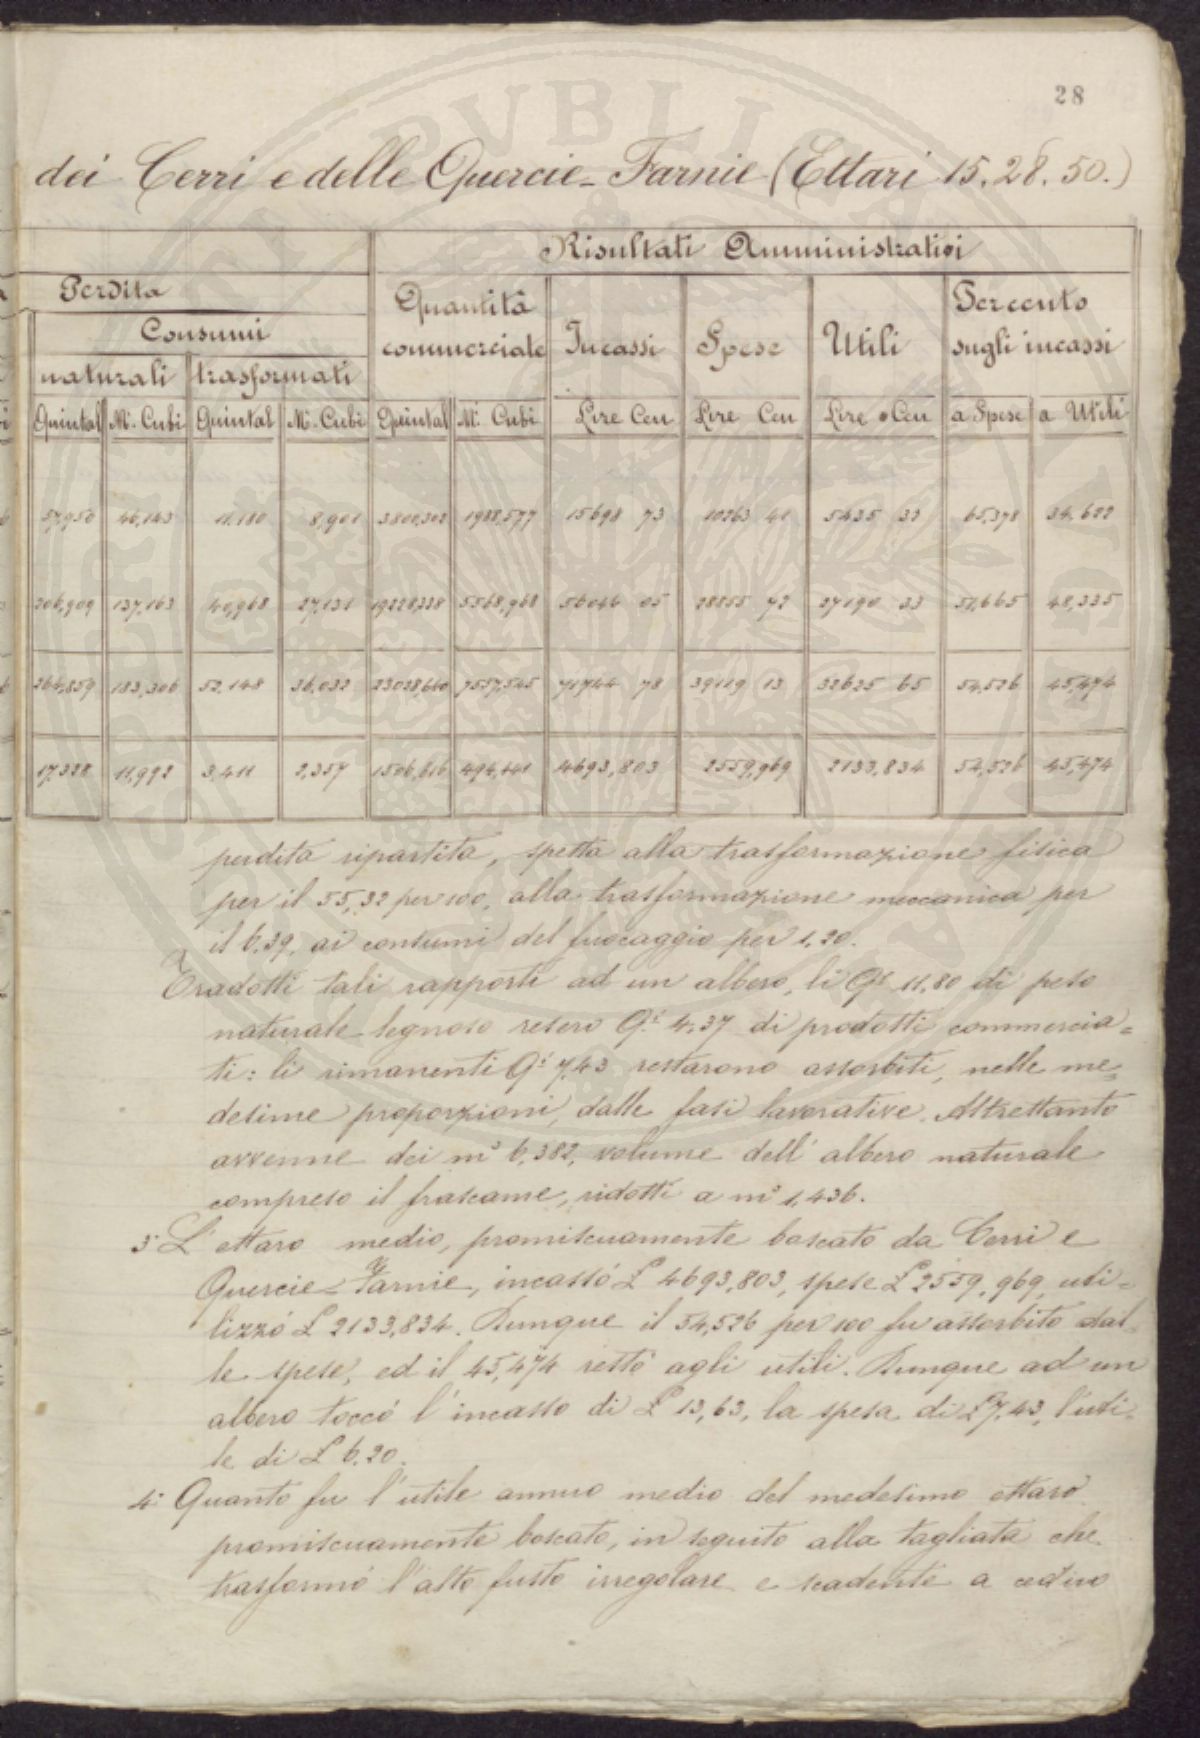 28
dei Cerri e delle Quercie-Farnie (Ettari 15.28.50.)
Risultati Amministrativi
Perdita
Consumi
naturali trasformati
Quantità commerciale
Incassi Spese Utili
Percento sugli incassi
Quintal M. Cubi Quintal M. Cubi Quintal M. Cubi Lire Cen Lire Cen Lire Cen a Spese a Utili
57,950 46,143 11,180 8,901 3800,302 1988,577 15698 73 10263 41 5435 32 65,378 34,622
206,909 137,163 40,968 27,131 19228,328 5568,968 56046 05 28855 72 27190 33 51,665 48,335
264,859 183,306 52,148 36,032 23028,660 7557,545 71744 78 39119 13 32625 65 54,526 45,474
17,328 11,992 3,411 2,357 1506,616 494,441 4693,803 2559,969 2133,834 54,526 45,474
perdita ripartita, spetta alla trasformazione fisica
per il 55,32 per 100, alla trasformazione meccanica per
il 6.39, ai consumi del fuocaggio per 1,20.
Tradotti tali rapporti ad un albero, li Q.i 11,80 di peso
naturale legnoso resero Q.i 4,37 di prodotti commercia-
ti: li rimanenti Q.i 7,43 restarono assorbiti, nelle me-
desime proporzioni, dalle fasi lavorative. Altrettanto
avvenne dei m³ 6,382, volume dell'albero naturale
compreso il frascame, ridotti a m³ 1,436.
3° L'ettaro medio, promiscuamente boscato da Cerri e
Quercie-Farnie, incassò £ 4693,803, spese £ 2559,969, uti-
lizzò £ 2133,834. Dunque il 54,526 per 100 fu assorbito dal-
le spese, ed il 45,474 restò agli utili. Dunque ad un
albero toccò l'incasso di £ 13,63, la spesa di £ 7,43, l'uti-
le di £ 6.20.
4° Quanto fu l'utile annuo medio del medesimo ettaro
promiscuamente boscato, in seguito alla tagliata che
trasformò l'alto fusto irregolare e scadente a ceduo